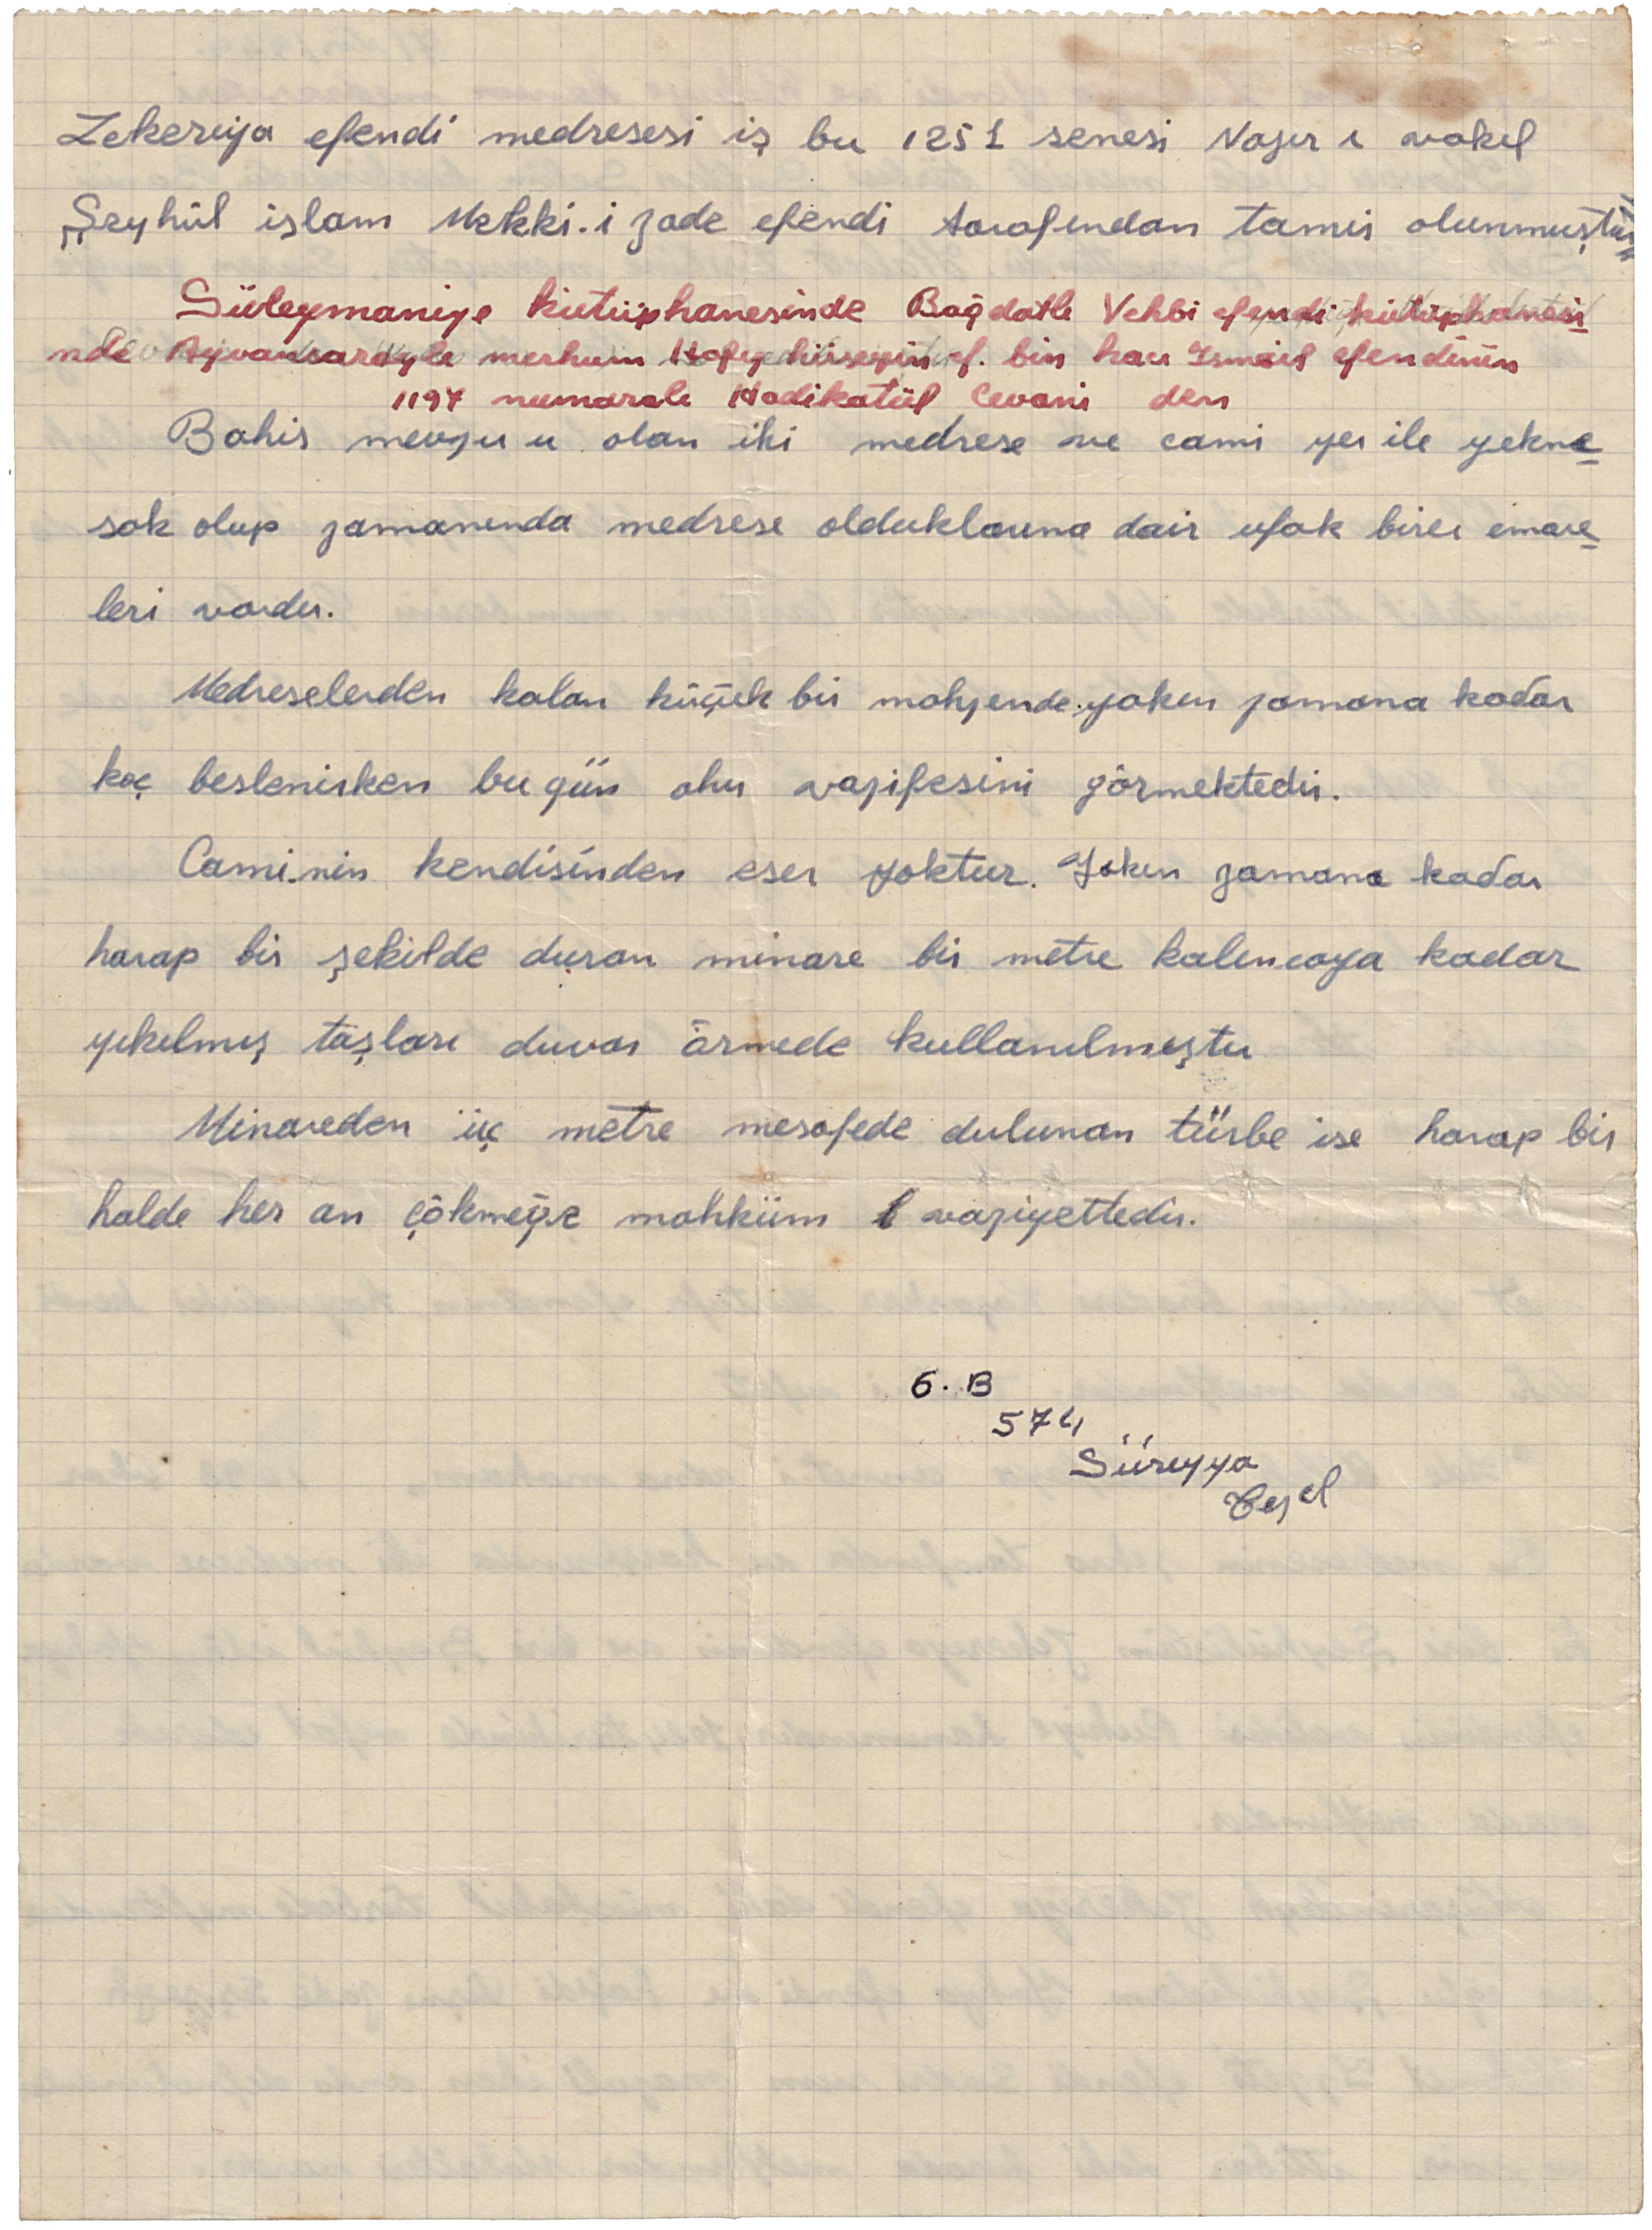 Zekeriya efendi medresesi iş bu 1251 senesi Nazır ı vakıf
Şeyhül islam Mekki.i zade efendi tarafından tamir olunmuştur"
Süleymaniye kütüphanesinde Bağdatlı Vehbi efendi kütüphanesi
nde Ayvansarayle merhum Hafız hüseyin ef. bin hacı İsmail efendinin
1197 numaralı Hadikatül Cevami den
Bahis mevzu u olan iki medrese ve cami yer ile yekne
sak olup zamanında medrese olduklarına dair ufak birer emare
leri vardır.
Medreselerden kalan küçük bir mahzende yakın zamana kadar
koç beslenirken bugün ahır vazifesini görmektedir.
Caminin kendisinden eser yoktur. Yakın zamana kadar
harap bir şekilde duran minare bir metre kalıncaya kadar
yıkılmış taşları duvar örmede kullanılmıştır
Minareden üç metre mesafede dulunan türbe ise harap bir
halde her an çökmeğe mahküm vaziyettedir.
6. B
574
Süreyya